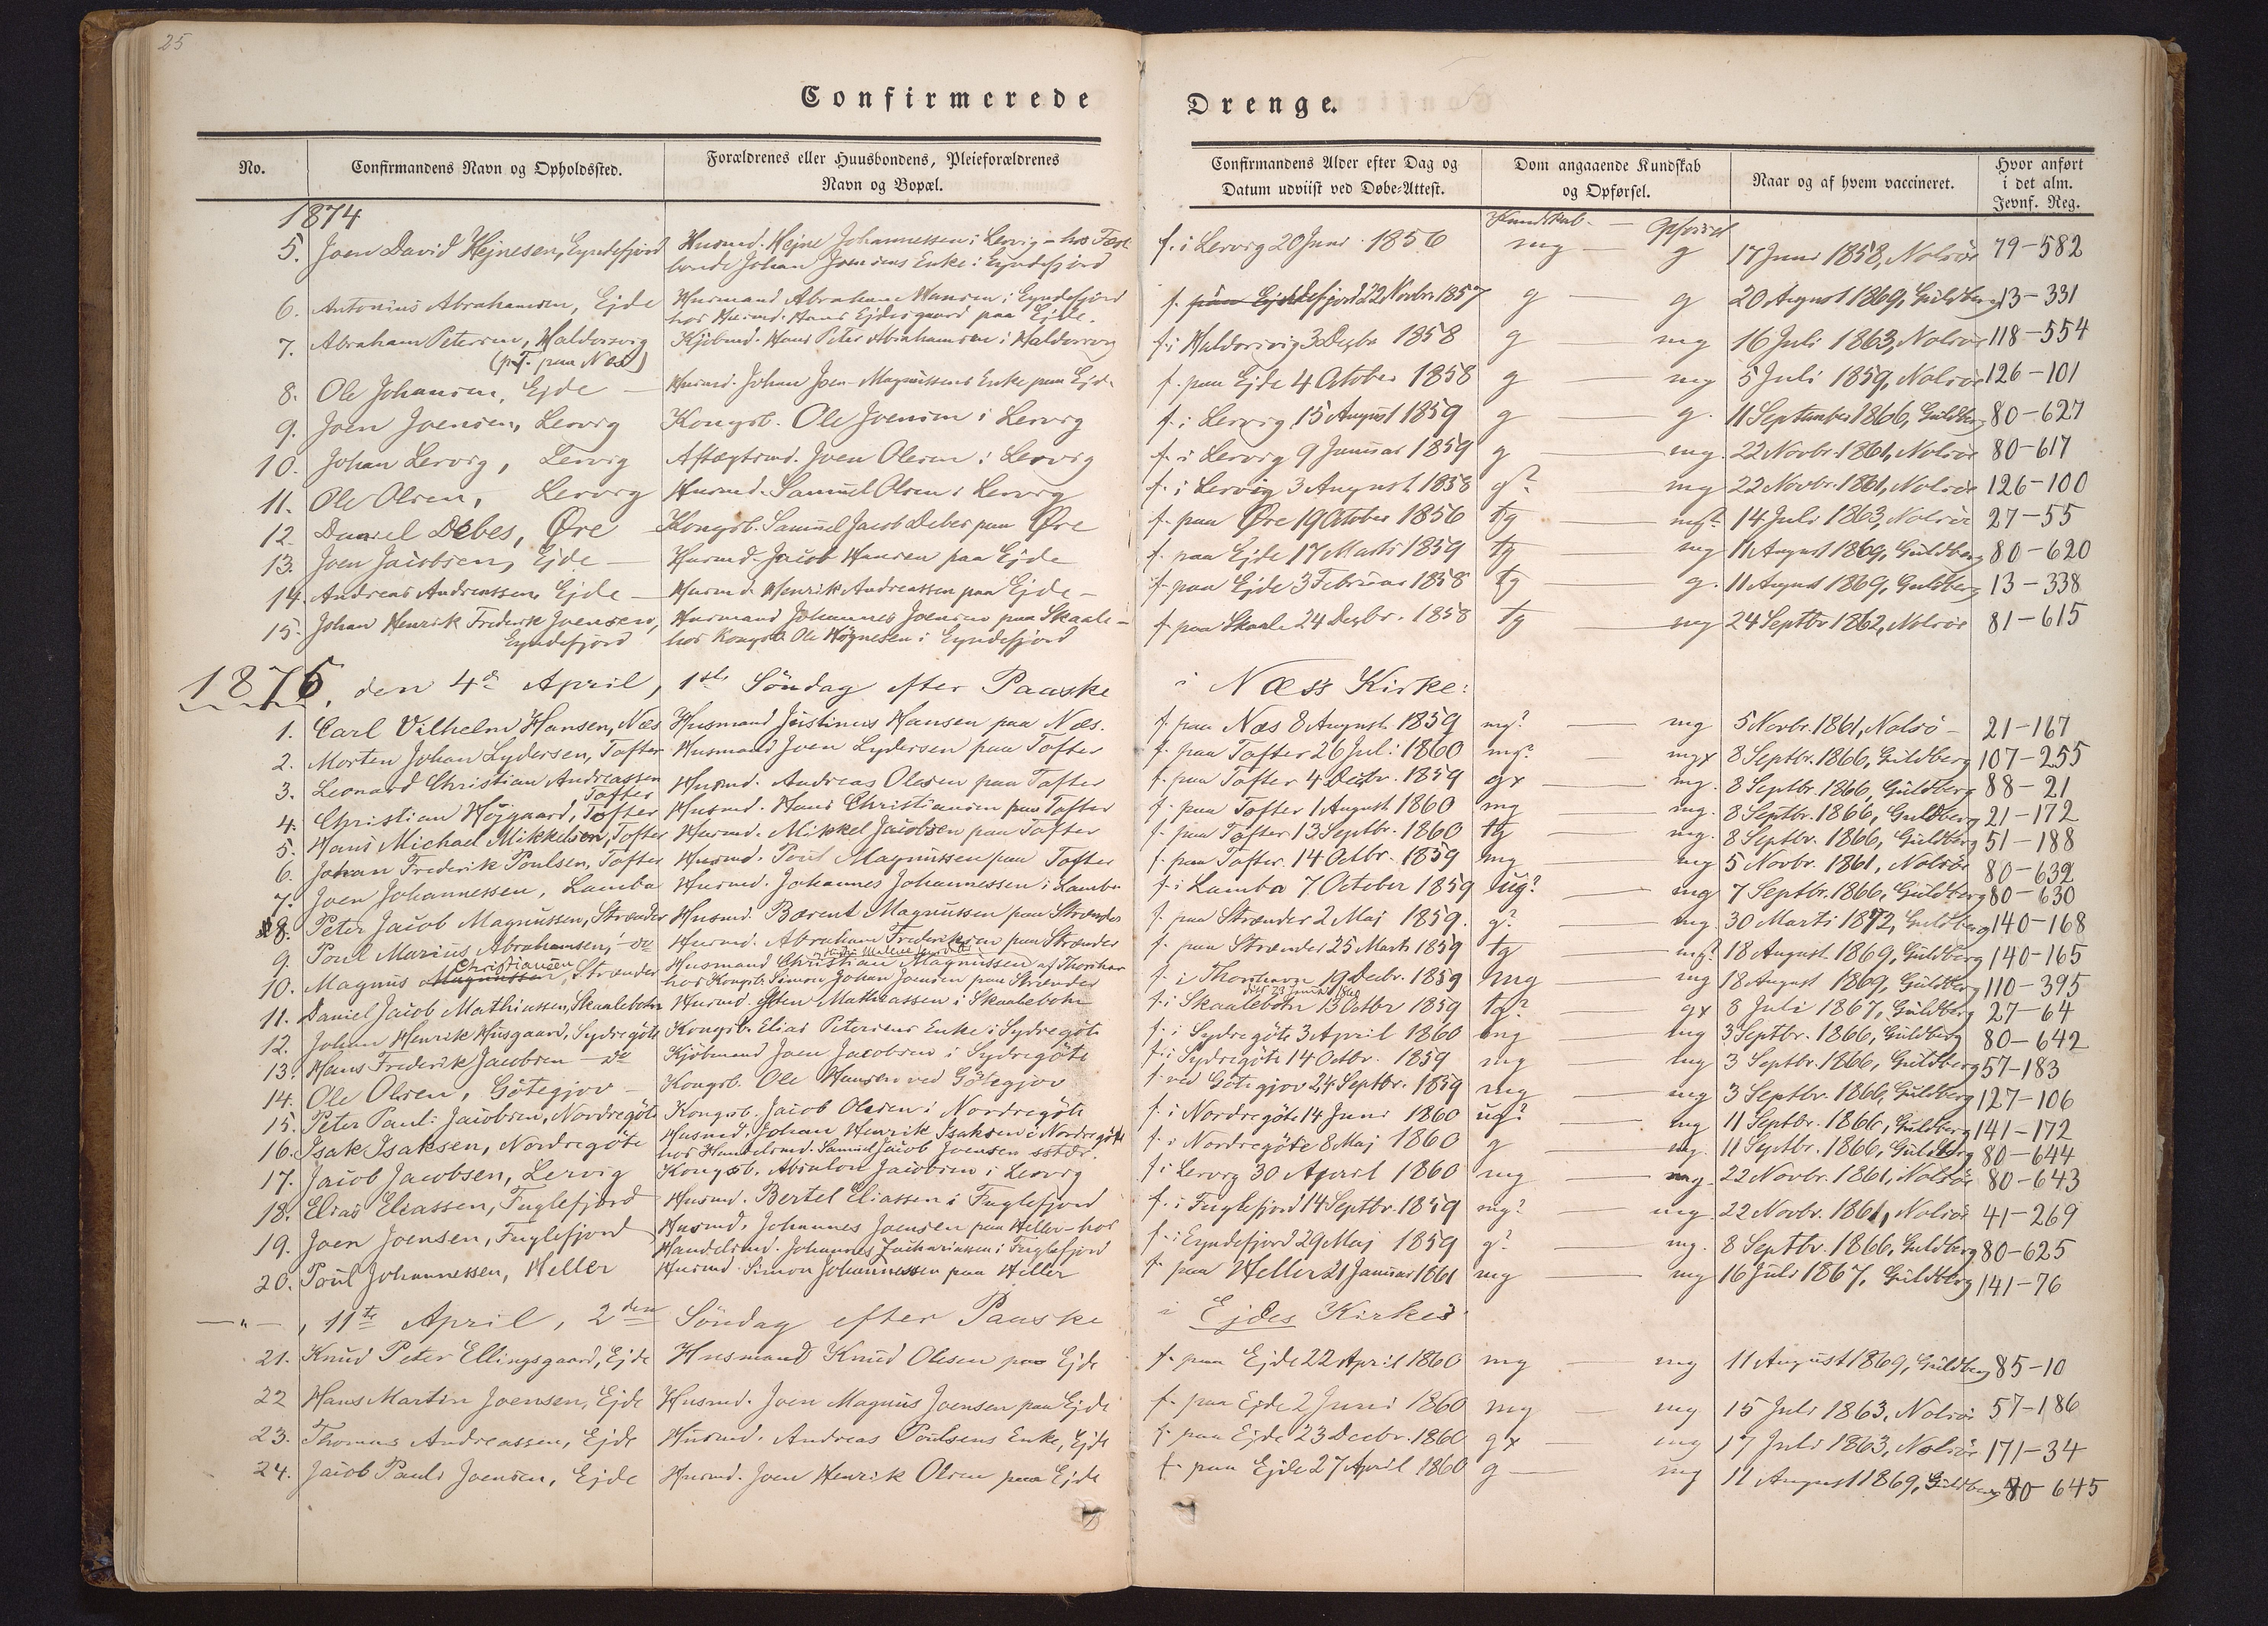 25
Confirmerede Drenge.
No. Confirmandens Navn og Opholdssted. Forældrenes eller Huusbondens, Pleieforældrenes Navn og Bopæl. Confirmandens Alder efter Dag og Datum udviist ved Døbe-Attest. Dom angaaende Kundskab og Opførsel. Naar og af hvem vaccineret. Hvor anført i det alm. Jevnf. Reg.
1874 Kundskab. — Opførsel
5. Joen David Hejnesen, Eyndefjord Husmd. Hejne Johannessen i Lervig - hos Fæst f. i Lervig 20 Juni 1856 mg — g 17 Juni 1858, Nolsöe 79-582
bonde Johan Joensens Enke i Eyndefjord
6. Antonius Abrahamsen, Ejde Husmand Abraham Hansen i Eyndefjord f. 22 Novbr 1857 g — g 20 August 1869, Guldberg 13-331
hos Husmd. Hans Ejdesgaard paa Ejde.
7. Abraham Petersen, Haldorsvig Kjøbmd. Hans Peter Abrahamsen i Haldorsvig f. i Haldorsvig 3 Decbr 1858 g — mg 16 Juli 1863, Nolsöe 118-554
(p.T. paa Næs)
8. Ole Johansen, Ejde — Husmd. Johan Joen-Magnussens Enke paa Ejde f. paa Ejde 4 October 1858 g — mg 5 Juli 1859, Nolsöe 126-101
9. Joen Joensen, Lervig Kongsb. Ole Joensen i Lervig f. i Lervig 15 August 1859 g — g. 11 September 1866, Guldberg 80-627
10. Johan Lervig, Lervig Aftægtsmd. Joen Olesen i Lervig f. i Lervig 9 Januar 1859 g — mg. 22 Novbr. 1861, Nolsöe 80-617
11. Ole Olsen, Lervig Husmd. Samuel Olsen i Lervig f. i Lervig 3 August 1858 g? — mg 22 Novbr. 1861, Nolsöe 126-100
12. Daniel Debes, Øre Kongsb. Samuel Jacob Debes paa Øre f. paa Øre 19 October 1856 tg — mg? 14 Juli 1863, Nolsöe 27-55
13. Joen Jacobsen, Ejde — Husmd. Jacob Hansen paa Ejde f. paa Ejde 17 Marts 1859 tg — mg 11 August 1869, Guldberg 80-620
14. Andreas Andreassen, Ejde — Husmd. Henrik Andreassen paa Ejde — f. paa Ejde 3 Februar 1858 tg — g. 11 August 1869, Guldberg 13-338
15. Johan Henrik Frederik Joensen, Husmand Johannes Joensen paa Skaale — f. paa Skaale 24 Decbr. 1858 tg — mg 24 Septbr 1862, Nolsöe 81-615
Eyndefjord hos Kongsb. Ole Högnesen i Eyndefjord
1875, den 4de April, 1ste Söndag efter Paaske i Næss Kirke:
1. Carl Vilhelm Hansen, Næs Husmand Justinus Hansen paa Næs. f. paa Næs 8 August 1859 mg? — mg 5 Novbr. 1861, Nolsö - 21-167
2. Morten Johan Lydersen, Tofter Husmand Joen Lydersen paa Tofter f. paa Tofter 26 Juli 1860 mg? — mgx 8 Septbr. 1866, Guldberg 107-255
3. Leonard Christian Andreassen Husmd. Andreas Olesen paa Tofter f. paa Tofter 4 Decbr. 1859 gx — mg. 8 Septbr. 1866, Guldberg 88-21
Tofter
4. Christian Höjgaard, Tofter Husmd. Hans Christiansen paa Tofter f. paa Tofter 1 August 1860 mg — mg. 8 Septbr. 1866, Guldberg 21-172
5. Hans Michael Mikkelsen, Tofter Husmd. Mikkel Jacobsen paa Tofter f. paa Tofter 13 Septbr. 1860 tg — mg. 8 Septbr. 1866, Guldberg 51-188
6. Johan Frederik Poulsen, Tofter Husmd. Poul Magnussen paa Tofter f. paa Tofter 14 Octbr. 1859 mg — mg 5 Novbr. 1861, Nolsöe 80-632
7. Joen Johannessen, Lamba Husmd. Johannes Johannessen i Lamba f. i Lamba 7 October 1859 ug? — mg 7 Septbr. 1866, Guldberg 80-630
8. Peter Jacob Magnussen, Strænder Husmd. Bærent Magnussen paa Strænder f. paa Strænder 2 Maj 1859. g? — mg. 30 Marts 1872, Guldberg 140-168
9. Poul Marius Abrahamsen, - do Husmd. Abraham Frederiksen paa Strænder f. paa Strænder 25 Marts 1859 tg — mg? 18 August 1869, Guldberg 140-165
10. Magnus Magnussen Christiansen, Strænder Husmand Christian Magnussen af Thorshavn f. i Thorshavn 19 Decbr. 1859 mg — mg 18 August 1869, Guldberg 110-395
hos Kongsb. Simon Johan Joensen paa Strænder
11. Daniel Jacob Mathiassen, Skaalebotn Husmd. Mathiassen i Skaalebotn f. i Skaalebotn 13 Octbr 1859 tg? — gx 8 Juli 1867, Guldberg 27-64
12. Johan Henrik Husgaard, Sydregöte Kongsb. Elias Petersens Enke i Sydregöte f. i Sydregöte 3 April 1860 mg — mg 3 Septbr. 1866, Guldberg 80-642
13. Hans Frederik Jacobsen - do Kjöbmand Joen Jacobsen i Sydregöte f. i Sydregöte 14 Octbr. 1859 mg — mg 3 Septbr. 1866, Guldberg 57-183
14. Ole Olsen, Götegjov — Kongsb. Ole Hansen ved Götegjov f. ved Götegjov 24 Septbr. 1859 mg — mg 3 Septbr. 1866, Guldberg 127-106
15. Peter Pauli Jacobsen, Nordregöte Kongsb. Jacob Olesen i Nordregöte f. i Nordregöte 14 Juni 1860 ug? — mg 11 Septbr. 1866, Guldberg 141-172
16. Isak Isaksen, Nordregöte Husmd. Johan Henrik Isaksen i Nordregöte f. i Nordregöte 8 Maj 1860 g — mg. 11 Septbr. 1866, Guldberg 80-644
hos Handelsmd. Samuel Jacob Joensen sstds.
17. Jacob Jacobsen, Lervig Kongsb. Absalon Jacobsen i Lervig f. i Lervig 30 April 1860 mg — mg. 22 Novbr. 1861, Nolsöe 80-643
18. Elias Eliassen, Fuglefjord Husmd. Bertel Eliassen i Fuglefjord f. i Fuglefjord 14 Septbr. 1859 mg? — mg. 22 Novbr. 1861, Nolsöe 41-269
19. Joen Joensen, Fuglefjord Husmd. Johannes Joensen paa Heller - hos f. i Eyndefjord 29 Maj 1859 g? — mg. 8 Septbr. 1866, Guldberg 80-625
Handelsmd. Johannes Zachariasen i Fuglefjord
20. Poul Johannessen, Heller Husmd. Simon Johannessen paa Heller f. paa Heller 21 Januar 1861 mg — mg 16 Juli 1867, Guldberg 141-76
— " — , 11te April, 2den Söndag efter Paaske i Ejdes Kirke:
21. Knud Peter Ellingsgaard, Ejde Husmand Knud Olesen paa Ejde f. paa Ejde 22 April 1860 mg — mg 11 August 1869, Guldberg 85-10
22 Hans Martin Joensen, Ejde Husmd. Joen Magnus Joensen paa Ejde f. paa Ejde 2 Juni 1860 mg — mg 15 Juli 1863, Nolsöe 57-186
23. Thomas Andreassen, Ejde Husmd. Andreas Poulsens Enke, Ejde f. paa Ejde 23 Decbr. 1860 gx — mg 17 Juli 1863, Nolsöe 171-34
24. Jacob Pauli Joensen, Ejde Husmd. Joen Henrik Olsen paa Ejde f. paa Ejde 27 April 1860 g — mg 11 August 1869, Guldberg 80-645